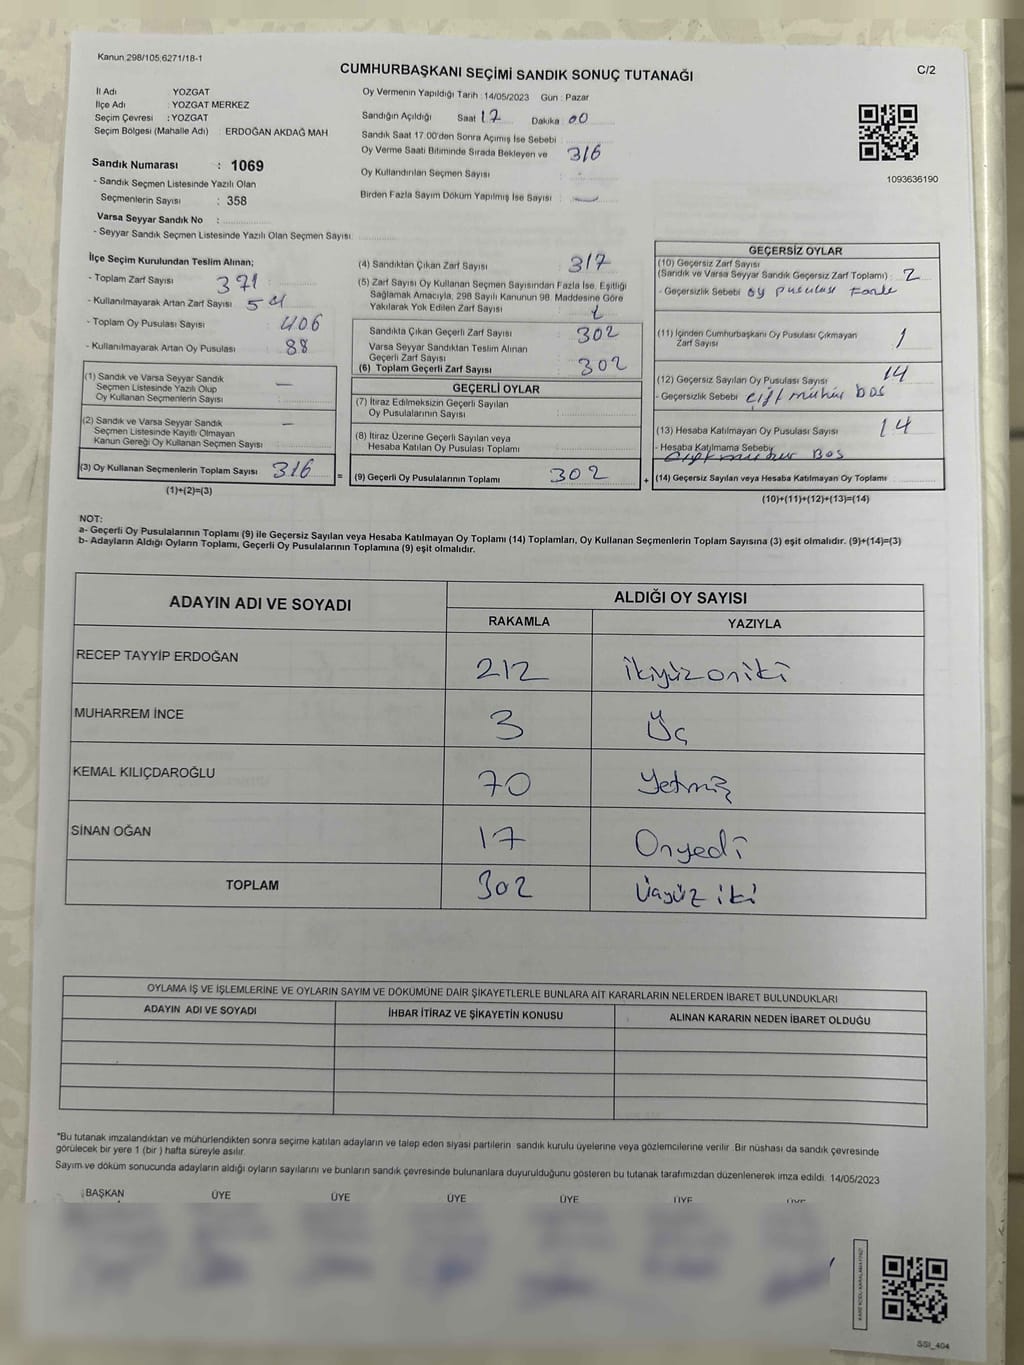 Kanun 298/105,6271/18-1
CUMHURBAŞKANI SEÇİMİ SANDIK SONUÇ TUTANAĞI
C/2
İl Adı YOZGAT
İlçe Adı : YOZGAT MERKEZ
Seçim Çevresi : YOZGAT
Seçim Bölgesi (Mahalle Adı) : ERDOĞAN AKDAĞ MAH
Sandık Numarası : 1069
- Sandık Seçmen Listesinde Yazılı Olan
Seçmenlerin Sayısı : 358
Varsa Seyyar Sandık No :
- Seyyar Sandık Seçmen Listesinde Yazılı Olan Seçmen Sayısı:
Oy Vermenin Yapıldığı Tarih : 14/05/2023 Gün : Pazar
Sandığın Açıldığı Saat 17 Dakika : 00
Sandık Saat 17.00'den Sonra Açılmış İse Sebebi :
Oy Verme Saati Bitiminde Sırada Bekleyen ve 316
Oy Kullandırılan Seçmen Sayısı :
Birden Fazla Sayım Döküm Yapılmış İse Sayısı : —
1093636190
İlçe Seçim Kurulundan Teslim Alınan;
- Toplam Zarf Sayısı : 371
- Kullanılmayarak Artan Zarf Sayısı : 54
- Toplam Oy Pusulası Sayısı : 406
- Kullanılmayarak Artan Oy Pusulası : 88
(1) Sandık ve Varsa Seyyar Sandık
Seçmen Listesinde Yazılı Olup
Oy Kullanan Seçmenlerin Sayısı : —
(2) Sandık ve Varsa Seyyar Sandık
Seçmen Listesinde Kayıtlı Olmayan
Kanun Gereği Oy Kullanan Seçmen Sayısı : —
(3) Oy Kullanan Seçmenlerin Toplam Sayısı : 316
(1)+(2)=(3)
=
(4) Sandıktan Çıkan Zarf Sayısı : 317
(5) Zarf Sayısı Oy Kullanan Seçmen Sayısından Fazla İse, Eşitliği
Sağlamak Amacıyla, 298 Sayılı Kanunun 98. Maddesine Göre
Yakılarak Yok Edilen Zarf Sayısı :
Sandıkta Çıkan Geçerli Zarf Sayısı : 302
Varsa Seyyar Sandıktan Teslim Alınan
Geçerli Zarf Sayısı :
(6) Toplam Geçerli Zarf Sayısı : 302
GEÇERLİ OYLAR
(7) İtiraz Edilmeksizin Geçerli Sayılan
Oy Pusulalarının Sayısı :
(8) İtiraz Üzerine Geçerli Sayılan veya
Hesaba Katılan Oy Pusulası Toplamı :
(9) Geçerli Oy Pusulalarının Toplamı : 302
+
GEÇERSİZ OYLAR
(10) Geçersiz Zarf Sayısı
(Sandık ve Varsa Seyyar Sandık Geçersiz Zarf Toplamı) : 2
- Geçersizlik Sebebi : oy pusulası
(11) İçinden Cumhurbaşkanı Oy Pusulası Çıkmayan
Zarf Sayısı : 1
(12) Geçersiz Sayılan Oy Pusulası Sayısı : 14
- Geçersizlik Sebebi : Çift mühür boş
(13) Hesaba Katılmayan Oy Pusulası Sayısı : 14
- Hesaba Katılmama Sebebi :
Çift mühür Boş
(14) Geçersiz Sayılan veya Hesaba Katılmayan Oy Toplamı :
(10)+(11)+(12)+(13)=(14)
NOT:
a- Geçerli Oy Pusulalarının Toplamı (9) ile Geçersiz Sayılan veya Hesaba Katılmayan Oy Toplamı (14) Toplamları, Oy Kullanan Seçmenlerin Toplam Sayısına (3) eşit olmalıdır. (9)+(14)=(3)
b- Adayların Aldığı Oyların Toplamı, Geçerli Oy Pusulalarının Toplamına (9) eşit olmalıdır.
ADAYIN ADI VE SOYADI
ALDIĞI OY SAYISI
RAKAMLA YAZIYLA
RECEP TAYYİP ERDOĞAN 212 İkiyüzoniki
MUHARREM İNCE 3 Üç
KEMAL KILIÇDAROĞLU 70 Yetmiş
SİNAN OĞAN 17 Onyedi
TOPLAM 302 Üçyüz iki
OYLAMA İŞ VE İŞLEMLERİNE VE OYLARIN SAYIM VE DÖKÜMÜNE DAİR ŞİKAYETLERLE BUNLARA AİT KARARLARIN NELERDEN İBARET BULUNDUKLARI
ADAYIN ADI VE SOYADI İHBAR İTİRAZ VE ŞİKAYETİN KONUSU ALINAN KARARIN NEDEN İBARET OLDUĞU
*Bu tutanak imzalandıktan ve mühürlendikten sonra seçime katılan adayların ve talep eden siyasi partilerin sandık kurulu üyelerine veya gözlemcilerine verilir. Bir nüshası da sandık çevresinde
görülecek bir yere 1 (bir ) hafta süreyle asılır.
Sayım ve döküm sonucunda adayların aldığı oyların sayılarını ve bunların sandık çevresinde bulunanlara duyurulduğunu gösteren bu tutanak tarafımızdan düzenlenerek imza edildi. 14/05/2023
BAŞKAN ÜYE ÜYE ÜYE ÜYE ÜYE ÜYE
SSI_404